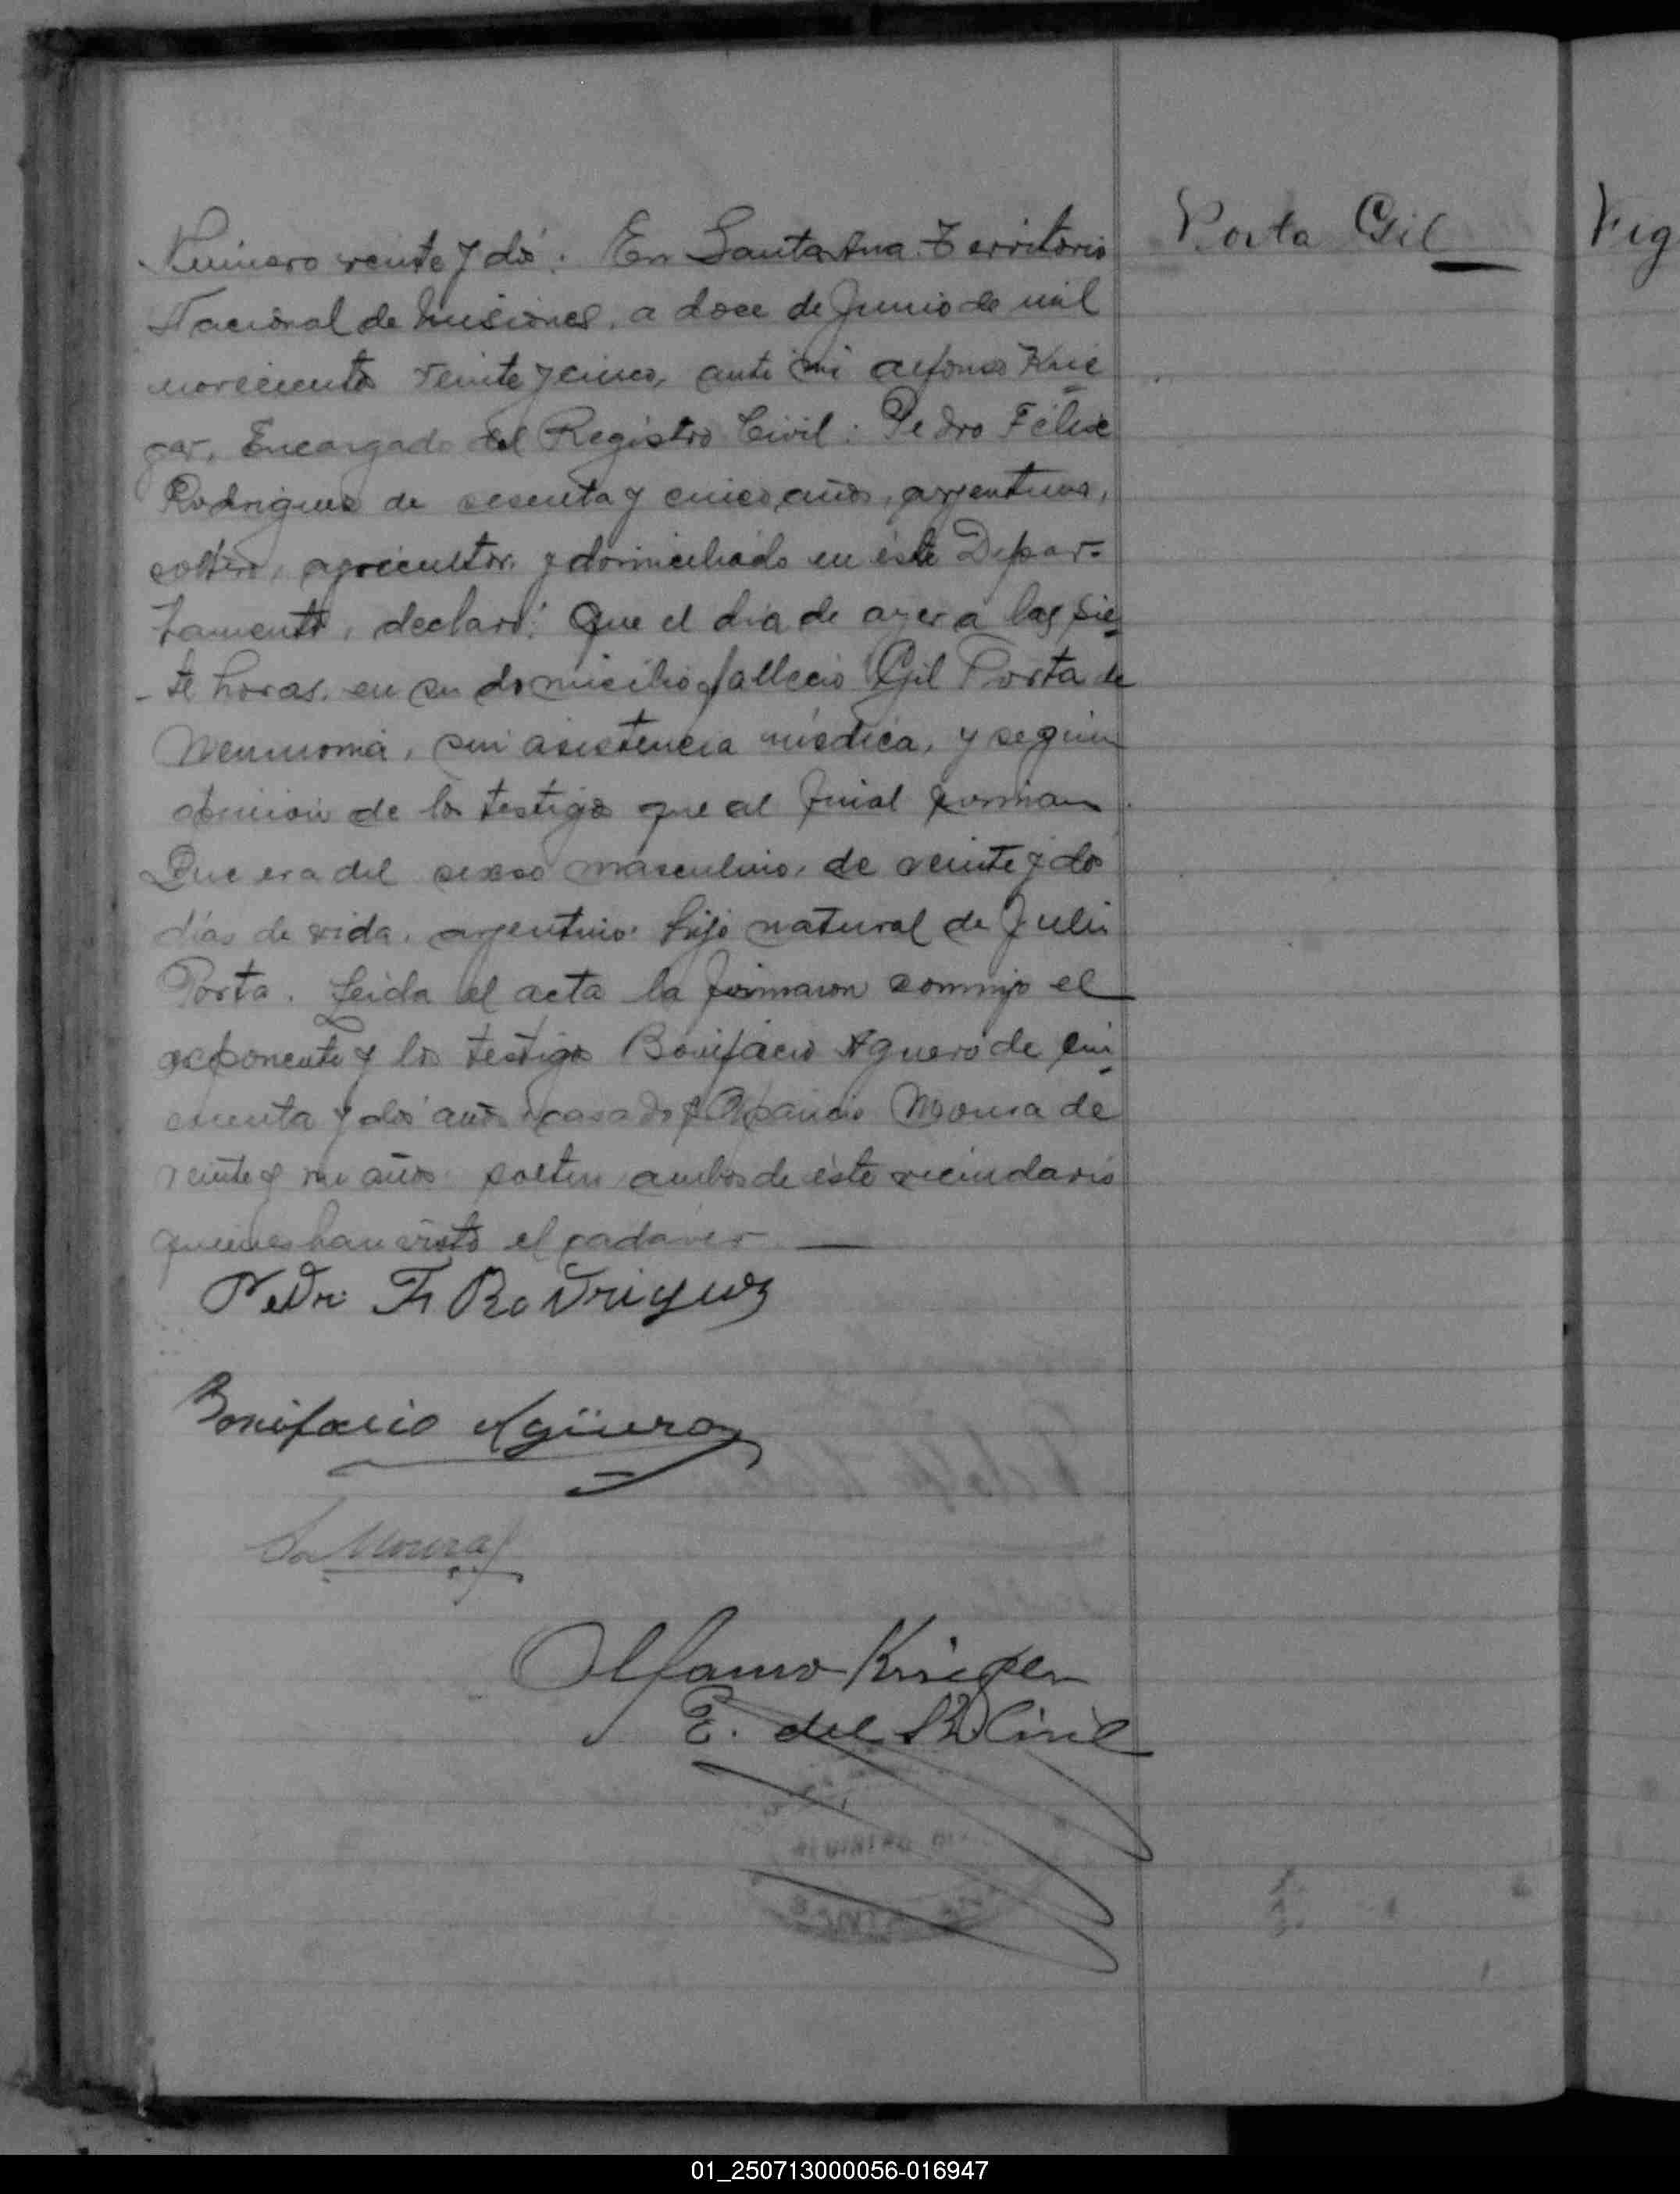 Porta Gil
Fig
Número veinte y dos: En Santa Ana. Territorio
Nacional de Misiones, a doce de Junio de mil
novecientos veinte y cinco, ante mi Alfonso Krie
ger, Encargado del Registro Civil: Pedro Félix
Rodriguez de sesenta y cinco años, argentino,
soltero, agricultor, y domiciliado en éste Depar-
tamento, declaró: Que el dia de ayer a las sie
-te horas, en su domicilio falleció Gil Porta de
Neumonia, sin asistencia médica, y según
opinion de los testigos que al final firman
Que era del sexso masculino, de veinte y dos
días de vida, argentino, hijo natural de Julia
Porta. Leida el acta la firmaron conmigo el
exponente y los testigos Bonifacio Aguero de cin
cuenta y dos años, casado y Moura de
veinte y años soltero, ambos de éste vecindario
quienes han visto el cadaver —
Pedro F. Rodriguez
Bonifacio Agüero
Moura
Alfonso Krieger
E. del R. Civil
01_250713000056-016947